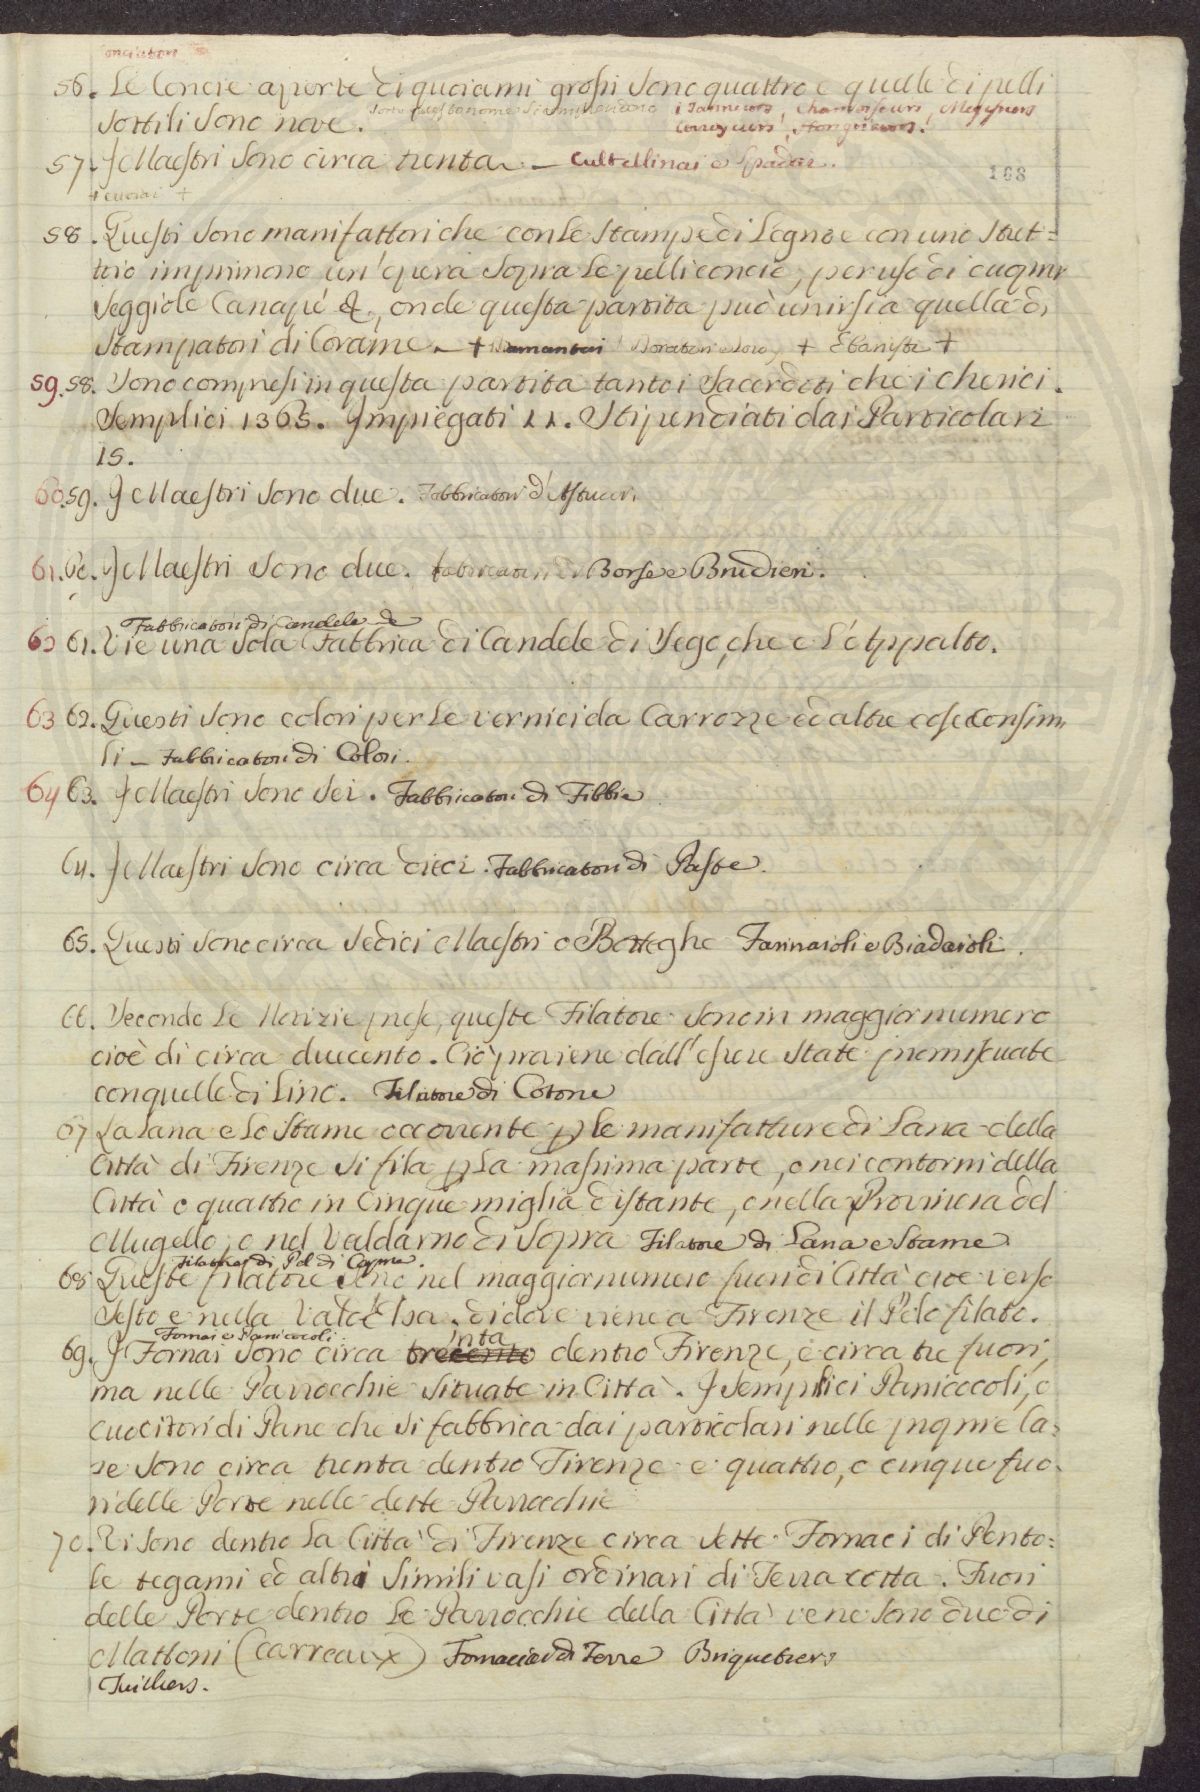 Conciatori
56. Le Concie aperte di quoiami grossi sono quattro e quelle di pelli
sotto questo nome si comprendono i Tanneurs, Chamoiseurs, Megissiers
sottili sono nove. Corroyeurs, Hongrieurs.
57. I Maestri sono circa trenta. - Cultellinai e Spadai.
168
+ cuoiai +
58. Questi sono manifattori che con le stampe di Legno e con uno stret=
toio imprimono un'opera sopra le pelli concie, per uso di cuoprir
seggiole Canapè &c, onde questa partita può unirsi a quella di
Stampatori di Corame. + Diamantai Doratori e loro, + Ebanisti +
59. 58. Sono compresi in questa partita tanto i Sacerdoti che i cherici.
Semplici 1365. Impiegati 11. Stipendiati dai Particolari
15.
60. 59. I Maestri sono due. Fabbricatori d'Astucci.
61. 60. I Maestri sono due. fabbricatori di Borse e Brudieri.
Fabbricatori di Candele de
62 61. Vi è una sola Fabbrica di Candele di Sego, che è l'Appalto.
63 62. Questi sono colori per le vernici da Carrozze ed altre cose consimi
li - Fabbricatori di Colori.
64 63. I Maestri sono sei. Fabbricatori di Fibbie
64. I Maestri sono circa dieci. Fabbricatori di Paste.
65. Questi sono circa sedici Maestri o Botteghe Farinaioli e Biadaioli.
66. Secondo le Notizie prese, queste Filatore sono in maggior numero
cioè di circa duecento. Ciò proviene dall'essere state promiscuate
con quelle di Lino. Filatore di Cotone
67 La Lana e lo Stame occorrente p le manifatture di Lana della
Città di Firenze si fila p la massima parte, o nei contorni della
Città o quattro in cinque miglia distante, o nella Provincia del
Mugello, o nel Valdarno di Sopra Filatore di Lana e Stame
Filatore di Pel di Capra.
68 Queste filatore sono nel maggior numero fuori di Città cioè verso
Sesto e nella Val d'Elsa, di dove viene a Firenze il Pelo filato.
Fornai e Panicocoli. inta
69. I Fornai sono circa trecento dentro Firenze, e circa tre fuori,
ma nelle Parrocchie situate in Città. I semplici Panicocoli, o
cuocitori di Pane che si fabbrica dai particolari nelle proprie Ca=
se sono circa trenta dentro Firenze e quattro, o cinque fuo=
ri delle Porte nelle dette Parrocchie
70. Vi sono dentro la Città di Firenze circa sette Fornaci di Pento=
le tegami ed altri simili vasi ordinari di Terra cotta. Fuori
delle Porte dentro le Parrocchie della Città ve ne sono due di
Mattoni (carreaux) Fornaciai di Terre Briquetiers
Tuilliers.